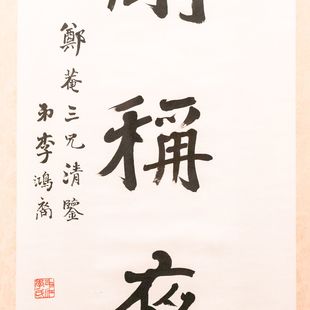 稱
鄭菴三兄清鑒
弟李鴻裔